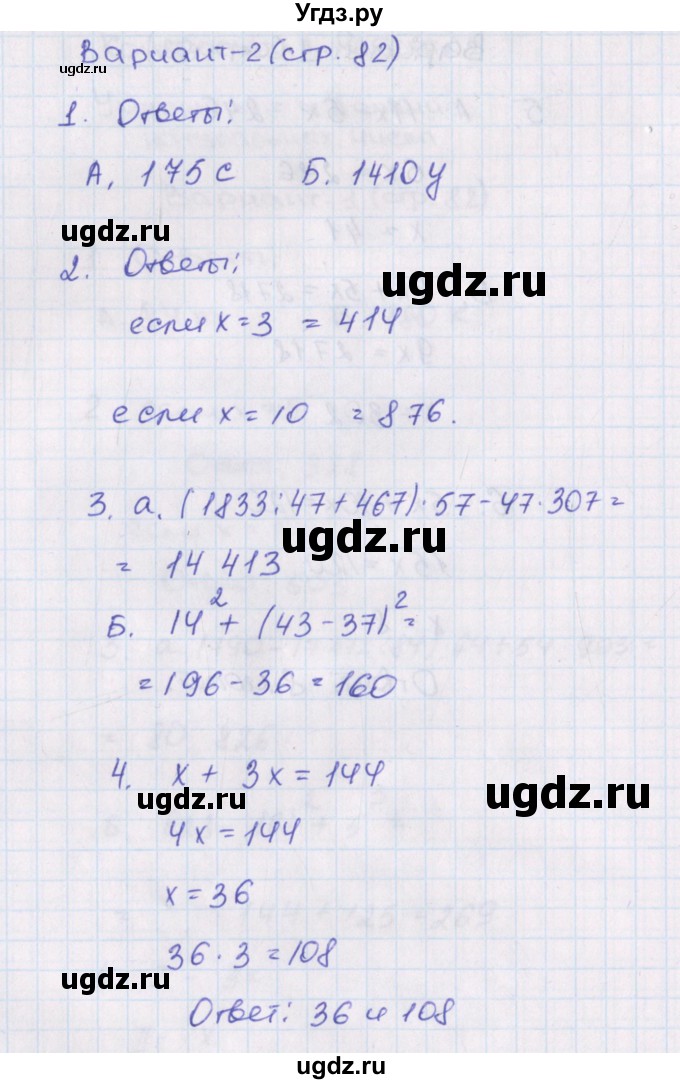 Угдз.ру
Вариант-2 (стр. 82)
ugdz.ru
1. Ответы:
А, 175 с Б. 1410 у
ugdz.ru
2. Ответы:
ugdz.ru
если x = 3 = 414
если x = 10 = 876.
3. а. (1833:47+467)·57-47·307=
ugdz.ru
= 14 413
Б. 14² + (43-37)² =
= 196 - 36 = 160
4. x + 3x = 144
ugdz.ru
ugdz.ru
4x = 144
x = 36
36 · 3 = 108
ugdz.ru
Ответ: 36 и 108
ugdz.ru